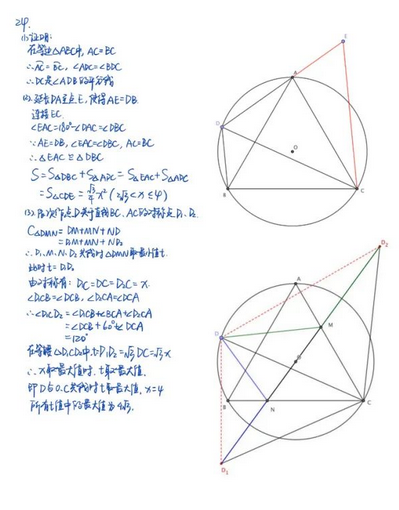 24.
(1) 证明:
在等边△ABC中, AC=BC
∴AC=BC, ∠ADC=∠BDC
∴DC是∠ADB的平分线
(2) 延长DA至点E, 使得AE=DB.
连接EC.
∠EAC=180°-∠DAC=∠DBC
∵AE=DB, ∠EAC=∠DBC, AC=BC
∴△EAC≌△DBC
S=S△DBC+S△ADC=S△EAC+S△ADC
=S△CDE=√3/4 x² (2√3<x≤4)
(3) 依次作点D关于直线BC、AC的对称点D₁、D₂
C△DMN=DM+MN+ND
=D₂M+MN+ND₁
∴D₁、M、N、D₂共线时△DMN取最小值t.
此时t=D₁D₂
由对称有: D₁C=DC=D₂C=x.
∠D₁CB=∠DCB, ∠D₂CA=∠DCA
∴∠D₁CD₂=∠D₁CB+∠BCA+∠D₂CA
=∠DCB+60°+∠DCA
=120°
在等腰△D₁CD₂中, t=D₁D₂=√3DC=√3x
∴x取最大值时, t取最大值.
即D、O、C共线时t取最大值, x=4
所有t值中的最大值为4√3.
E
A
D
O
B
C
D₂
A
D
M
O
B
N
C
D₁